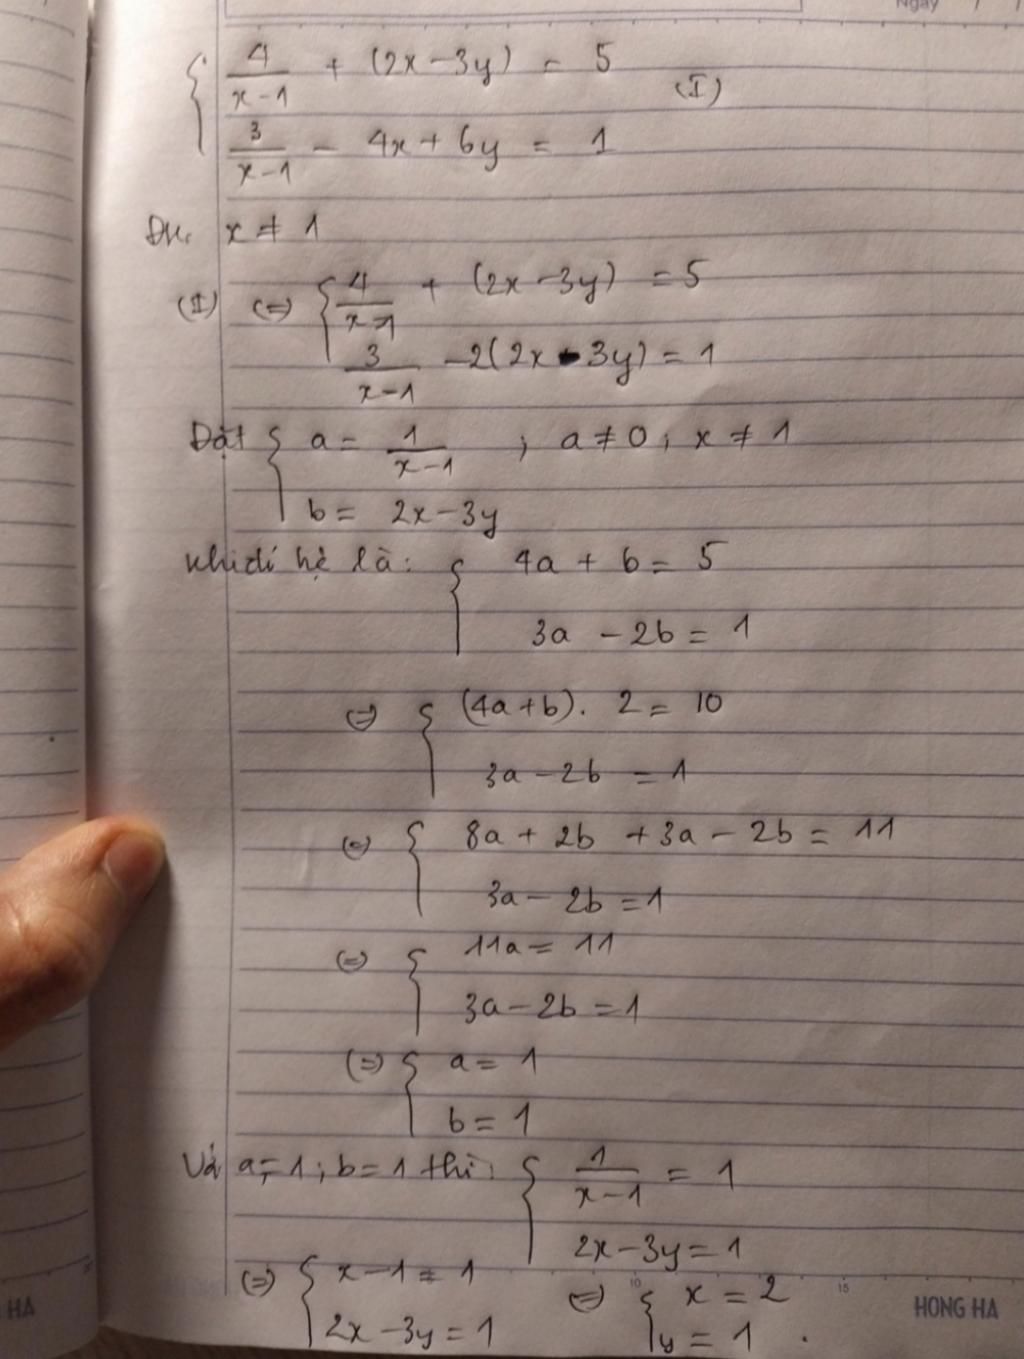 Ngày / /
{ 4/(x-1) + (2x-3y) = 5
(I)
3/(x-1) - 4x + 6y = 1
Đk. x ≠ 1
(I) (=) { 4/(x-1) + (2x-3y) = 5
3/(x-1) - 2(2x-3y) = 1
Đặt { a = 1/(x-1) ; a ≠ 0, x ≠ 1
b = 2x-3y
Khi đó hệ là: { 4a + b = 5
3a - 2b = 1
(=) { (4a+b). 2 = 10
3a - 2b = 1
(=) { 8a + 2b + 3a - 2b = 11
3a - 2b = 1
(=) { 11a = 11
3a - 2b = 1
(=) { a = 1
b = 1
Với a = 1 ; b = 1 thì: { 1/(x-1) = 1
2x-3y = 1
(=) { x-1 = 1 (=) { x = 2
2x-3y = 1 y = 1 .
10 15
HA HONG HA